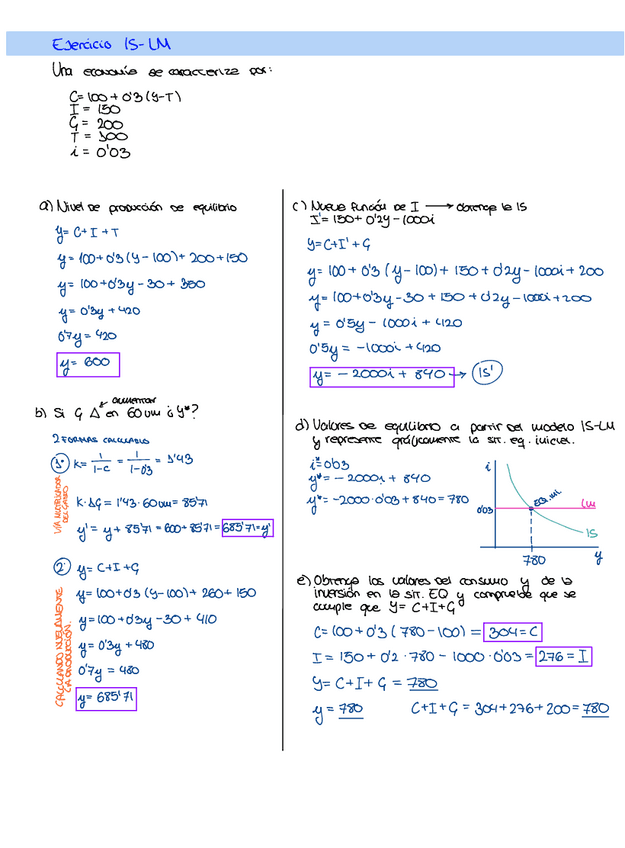 Ejercicio IS-LM
Una economía se caracteriza por:
C= 100 + 0'3 (Y-T)
I = 150
G = 200
T = 300
i = 0'03
a) Nivel de producción de equilibrio
y= C+I+T
y = 100+0'3 (y-100)+200+150
y= 100+0'3y-30+350
y= 0'3y+420
0'7y=420
y= 600
aumentar
b) Si G Δ en 60um ¿y*?
2 FORMAS CALCULARLO
1º K= 1/1-c = 1/1-0'3 = 1'43
VÍA MULTIPLICADOR DEL GASTO
K·ΔG = 1'43·60um= 85'71
y' = y + 85'71 = 600+85'71 = 685'71=y'
2º y= C+I+G
CALCULANDO NUEVAMENTE LA PRODUCCIÓN.
y= 100+0'3 (y-100)+260+150
y=100+0'3y-30+410
y= 0'3y+480
0'7y= 480
y= 685'71
c) Nueva función de I → obtenga la IS
I'= 150+0'2y-1000i
y=C+I'+G
y= 100+0'3 (y-100)+150+0'2y-1000i+200
y= 100+0'3y-30+150+0'2y-1000i+200
y= 0'5y-1000i+420
0'5y= -1000i+420
y= -2000i+840 → IS'
d) Valores de equilibrio a partir del modelo IS-LM
y represente gráficamente la sit. eq. inicial.
i*=0'03
y*= -2000i+840
y*= -2000·0'03+840=780
i
EQ. inicial
0'03
LM
IS
780
y
e) Obtenga los valores del consumo y de la
inversión en la sit. EQ y compruebe que se
cumple que Y= C+I+G
C= 100+0'3 (780-100)= 304=C
I= 150+0'2·780-1000·0'03= 276=I
Y= C+I+G = 780
y= 780 C+I+G = 304+276+200=780